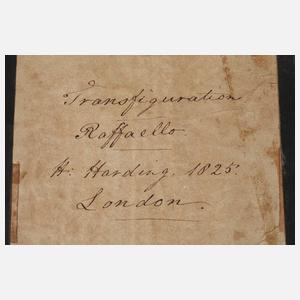 Transfiguration
Raffaello
H: Harding. 1825.
London.